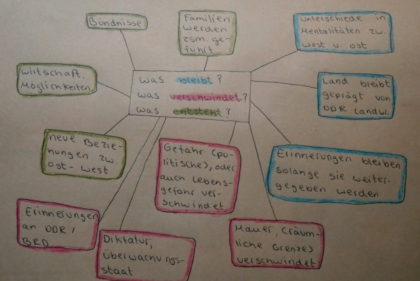 Bündnisse
Familien
werden
zsm. ge-
führt
unterschiede in
Mentalitäten zw.
West u. ost
wirtschaft.
Möglichkeiten
was bleibt?
was verschwindet?
was entsteht?
Land bleibt
geprägt von
DDR Landw.
neue Bezie-
hungen zw.
ost-west
Gefahr (po-
litische), oder
auch Lebens-
gefahr ver-
schwindet
Erinnerungen bleiben
solange sie weiter-
gegeben werden
Erinnerungen
an DDR /
BRD
Diktatur,
überwachungs-
staat
Mauer, (räum-
liche Grenze)
verschwindet